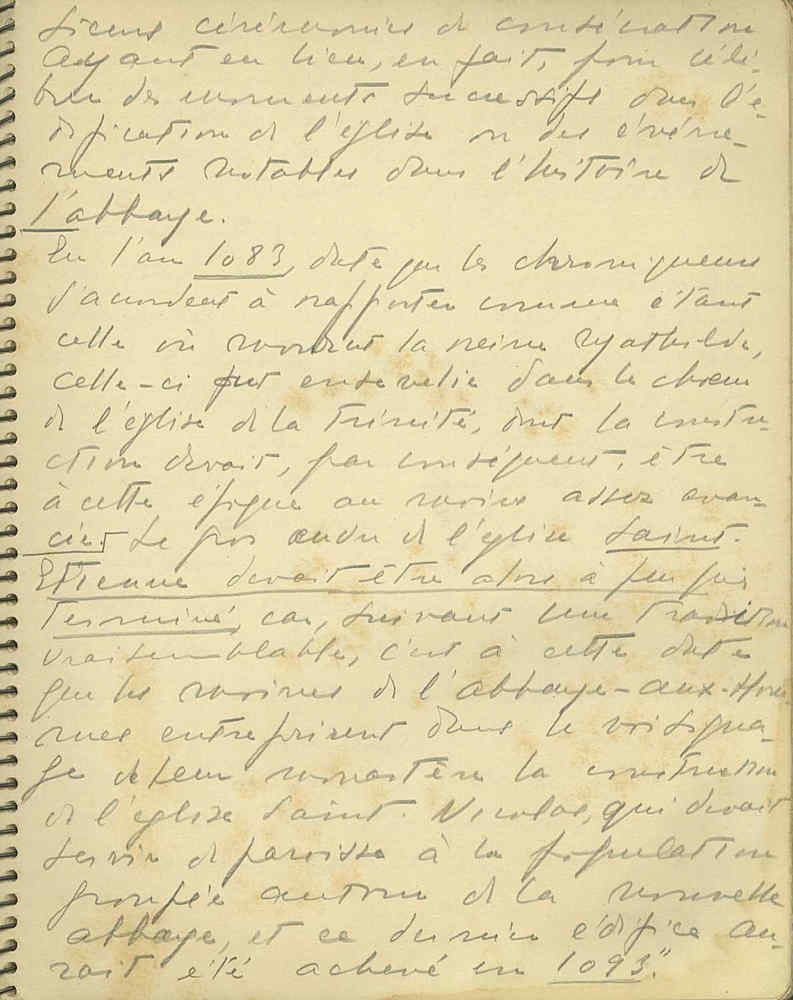 sieurs cérémonies de consécration
ayant eu lieu, en fait, pour célé-
brer des moments successifs dans l'é-
dification de l'église ou des événe-
ments notables dans l'histoire de
l'abbaye.
En l'an 1083, date que les chroniqueurs
s'accordent à rapporter comme étant
celle où mourut la reine Mathilde,
celle-ci fut ensevelie dans le chœur
de l'église de la Trinité, dont la constru-
ction devait, par conséquent, être
à cette époque au moins assez avan-
cée. Le gros œuvre de l'église Saint-
Etienne devait être alors à peu près
terminé, car, suivant une tradition
vraisemblable, c'est à cette date
que les moines de l'abbaye-aux-Hom-
mes entreprirent dans le voisina-
ge de leur monastère la construction
de l'église Saint-Nicolas, qui devait
servir de paroisse à la population
groupée autour de la nouvelle
abbaye, et ce dernier édifice au-
rait été achevé en 1093."